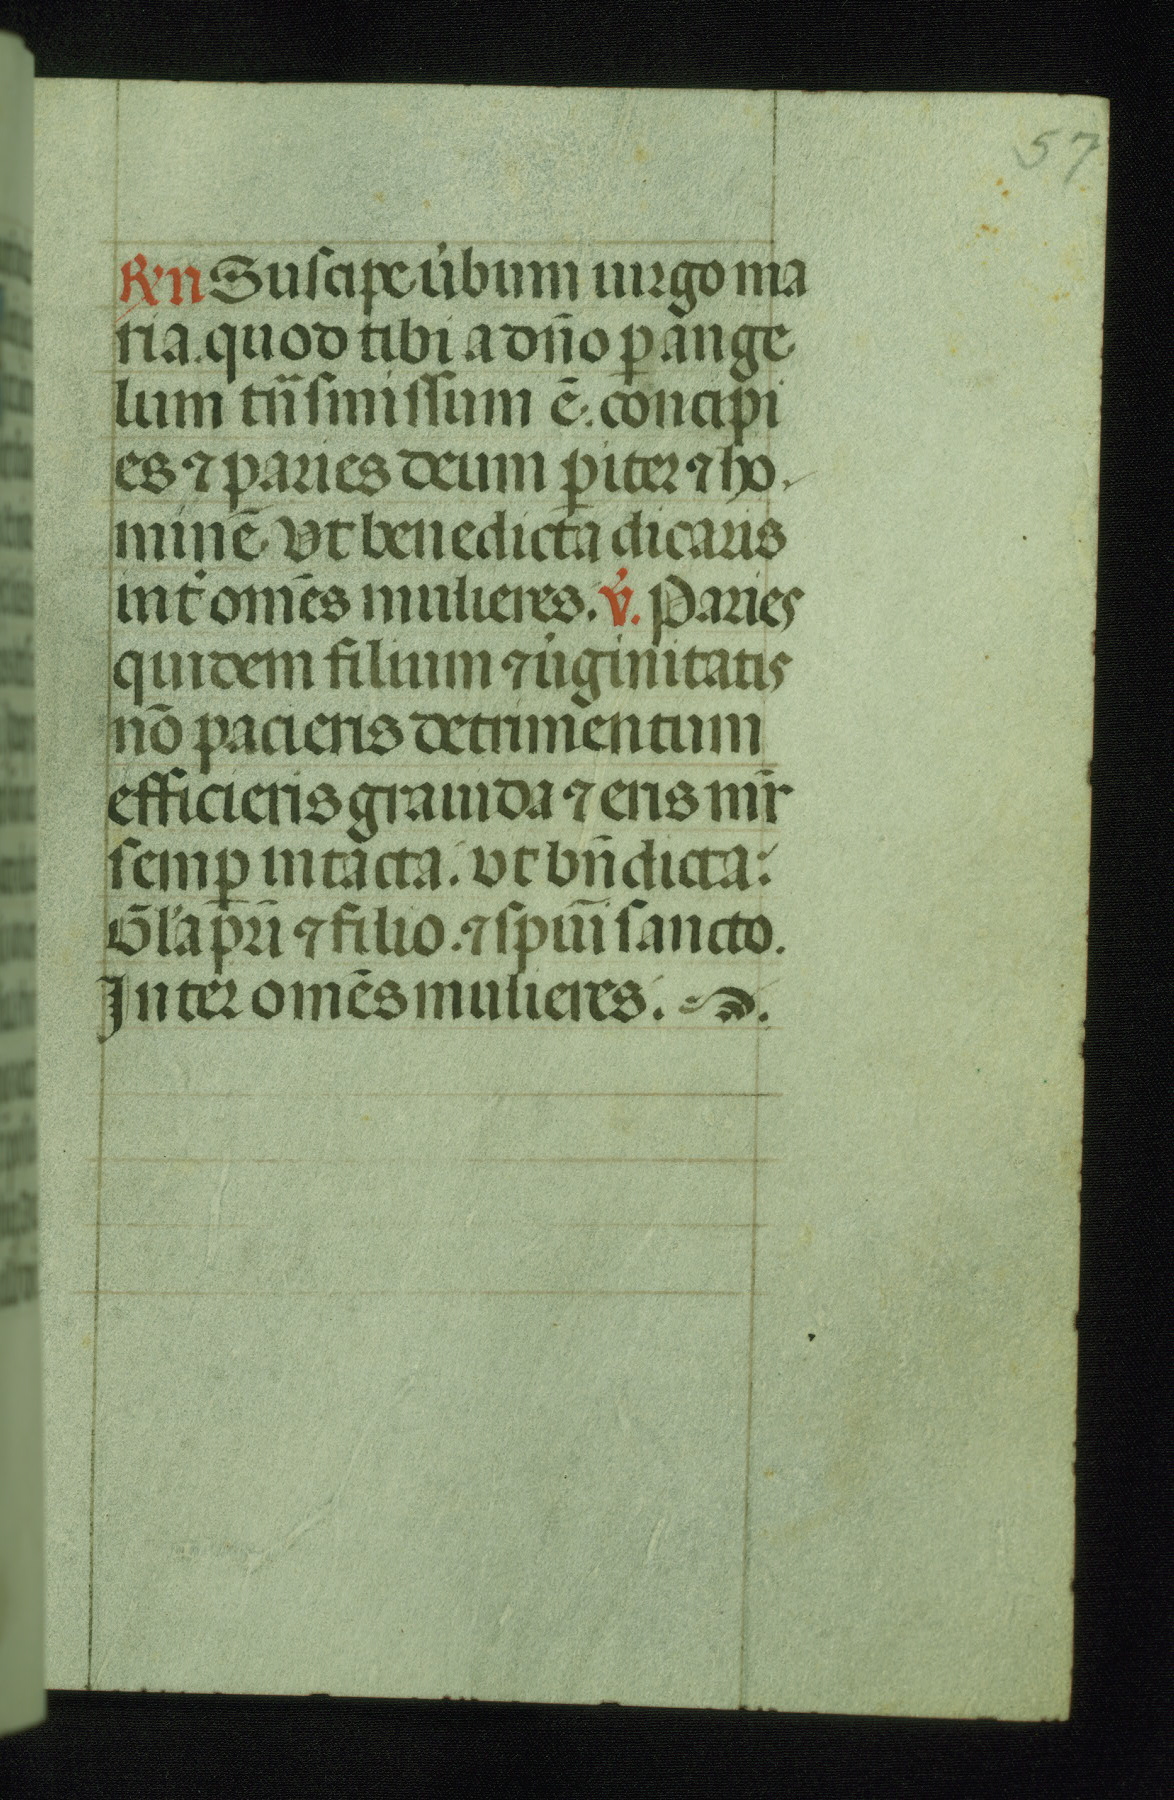 57
R̃n Suscipe úbum uirgo ma
ria. quod tibi a dño p̲ ange
lum tñsmissum ē. concipi
es ⁊ paries deum p̲iter ⁊ ho
minē vt benedicta dicaris
int̉ omēs mulieres. v̉. Paries
quidem filium ⁊ u̓ginitatis
nō pacieris detrimentum
efficieris grauida ⁊ eris mr̄
semp̲ intacta. vt bñdicta:
Gl̃a pr̃i ⁊ filio. ⁊ spiũi sancto.
Inter omēs mulieres.